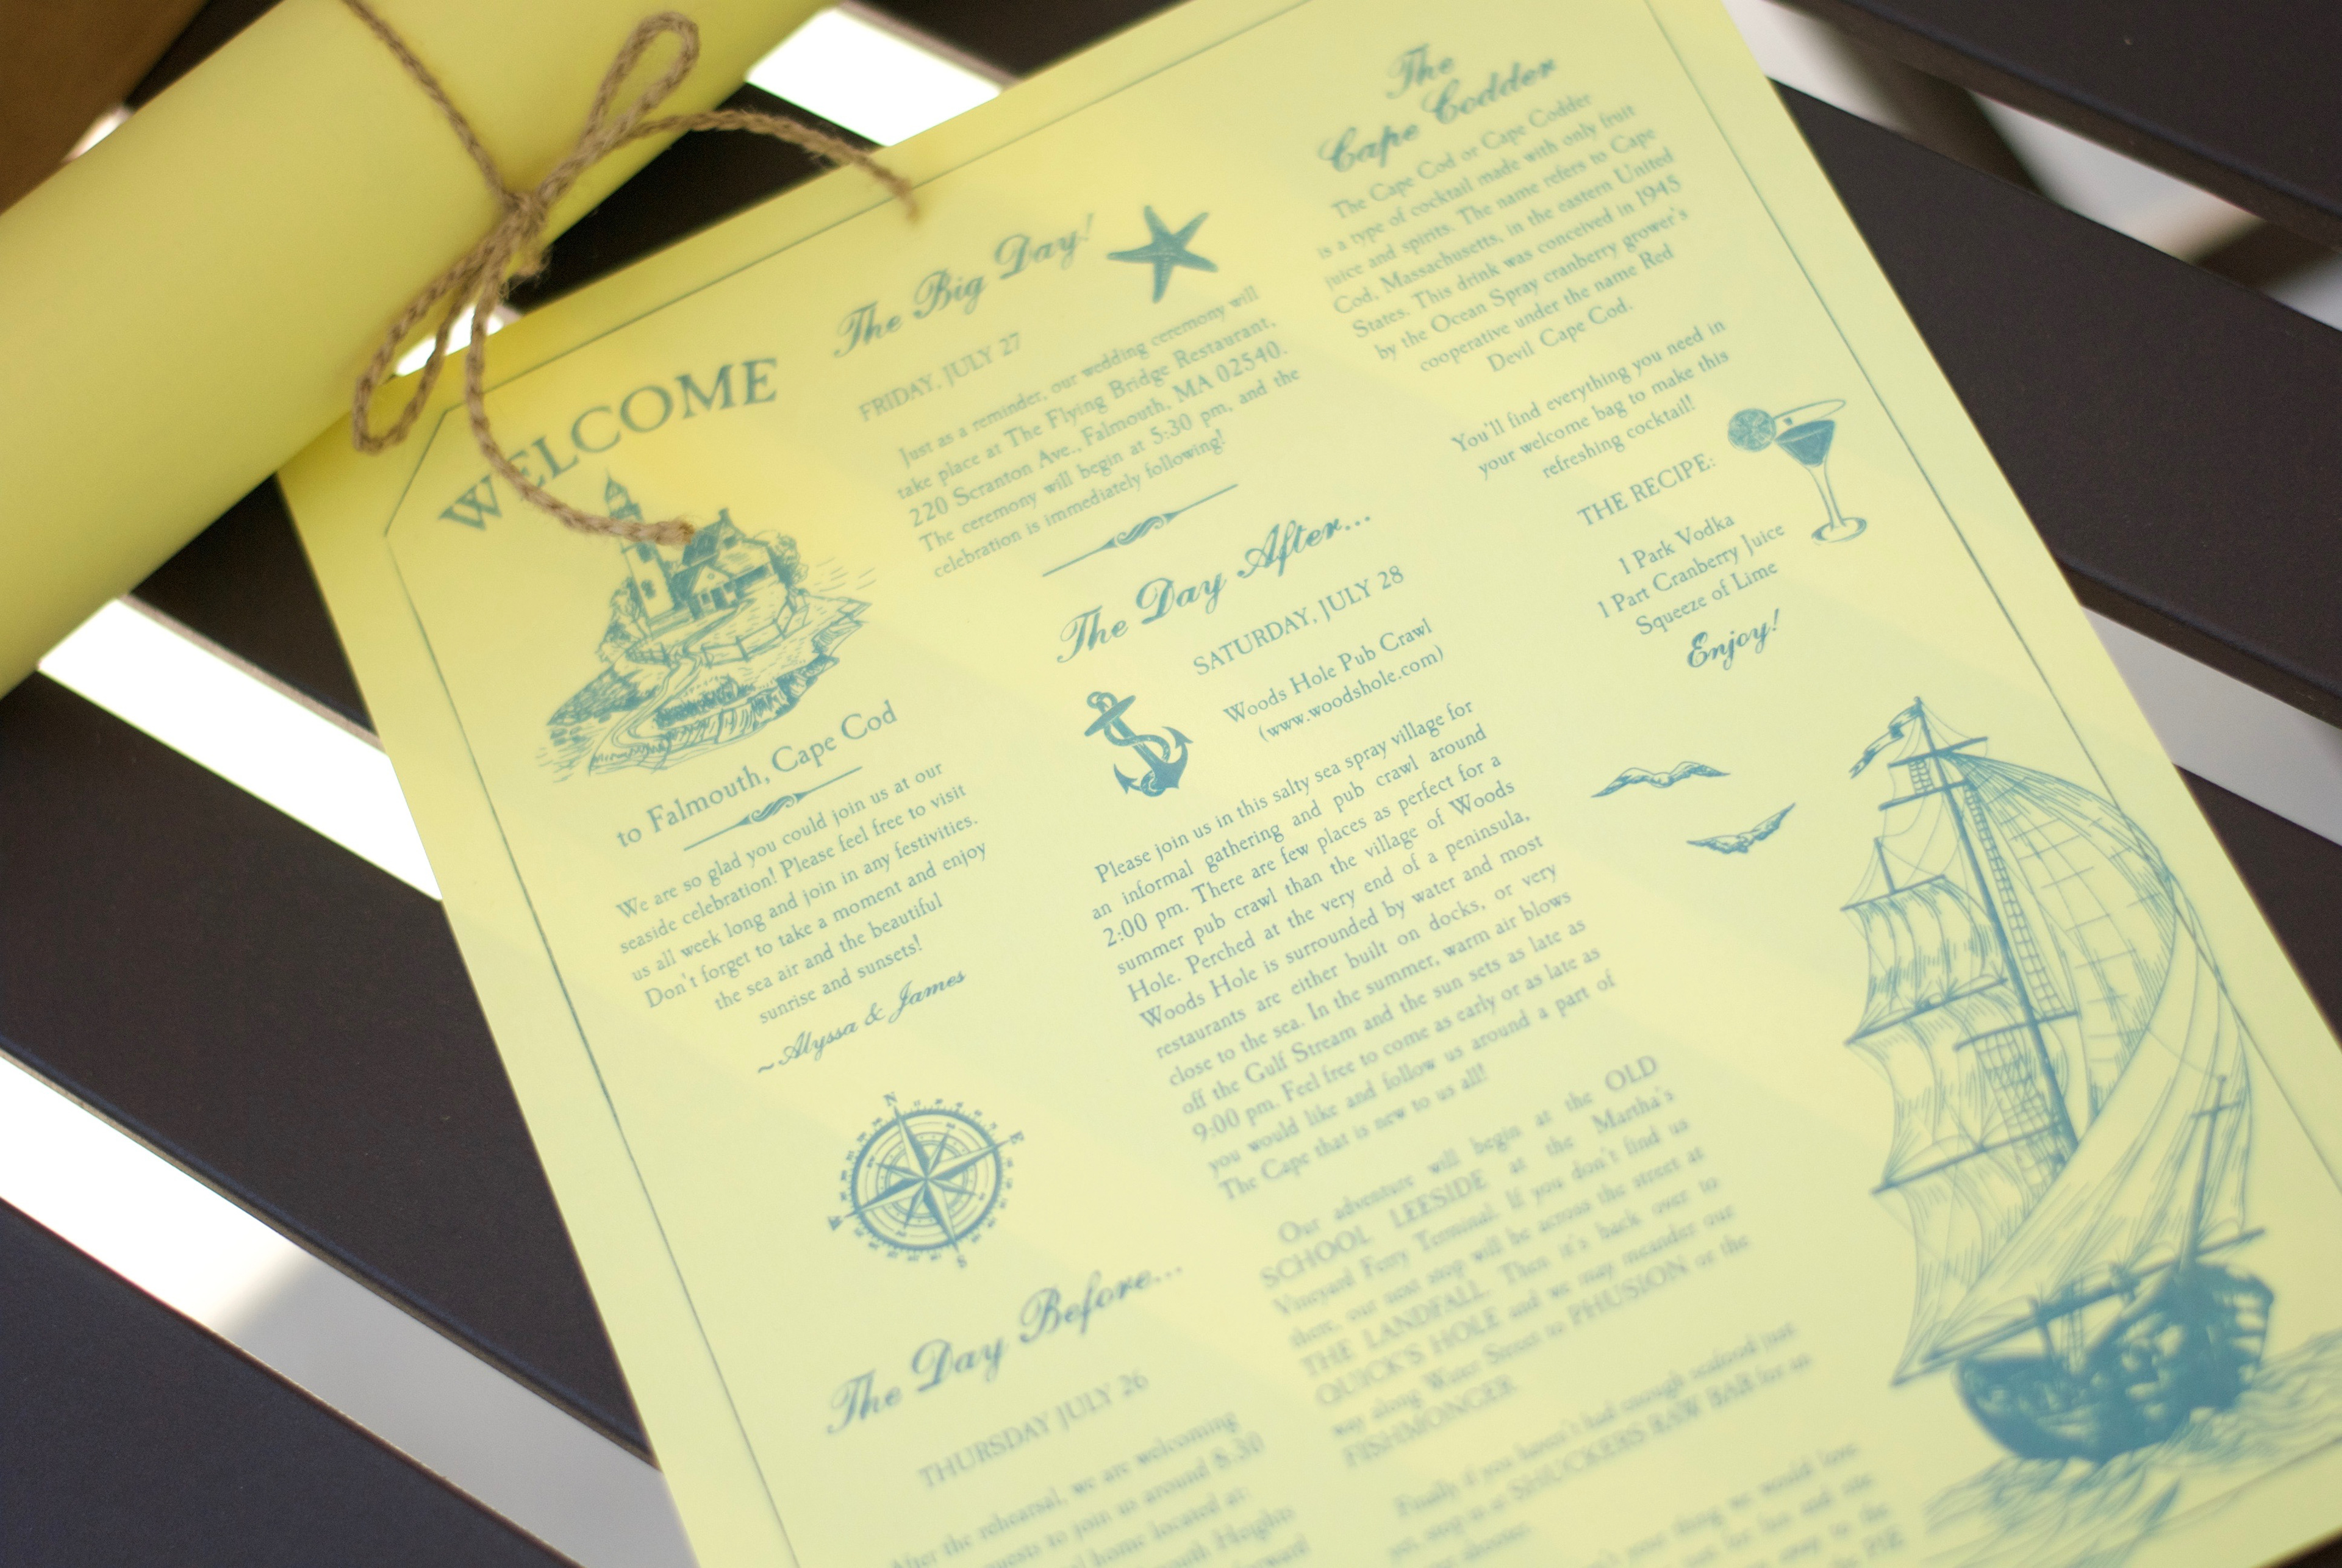 WELCOME
to Falmouth, Cape Cod
We are so glad you could join us at our
seaside celebration! Please feel free to visit
us all week long and join in any festivities.
Don't forget to take a moment and enjoy
the sea air and the beautiful
sunrise and sunsets!
~Alyssa & James
N
E
S
The Day Before...
THURSDAY JULY 26
After the rehearsal, we are welcoming
guests to join us around 8:30
home located at:
Heights
The Big Day!
FRIDAY, JULY 27
Just as a reminder, our wedding ceremony will
take place at The Flying Bridge Restaurant,
220 Scranton Ave., Falmouth, MA 02540.
The ceremony will begin at 5:30 pm, and the
celebration is immediately following!
The Day After...
SATURDAY, JULY 28
Woods Hole Pub Crawl
(www.woodshole.com)
Please join us in this salty sea spray village for
an informal gathering and pub crawl around
2:00 pm. There are few places as perfect for a
summer pub crawl than the village of Woods
Hole. Perched at the very end of a peninsula,
Woods Hole is surrounded by water and most
restaurants are either built on docks, or very
close to the sea. In the summer, warm air blows
off the Gulf Stream and the sun sets as late as
9:00 pm. Feel free to come as early or as late as
you would like and follow us around a part of
The Cape that is new to us all!
Our adventure will begin at the OLD
SCHOOL LEESIDE at the Martha's
Vineyard Ferry Terminal. If you don't find us
there, our next stop will be across the street at
THE LANDFALL. Then it's back over to
QUICK'S HOLE and we may meander our
way along Water Street to PHUSION or the
FISHMONGER.
Finally if you haven't had enough seafood just
yet, stop in at SHUCKERS RAW BAR for an
thing we would love
The
Cape Codder
The Cape Cod or Cape Codder
is a type of cocktail made with only fruit
juice and spirits. The name refers to Cape
Cod, Massachusetts, in the eastern United
States. This drink was conceived in 1945
by the Ocean Spray cranberry grower's
cooperative under the name Red
Devil Cape Cod.
You'll find everything you need in
your welcome bag to make this
refreshing cocktail!
THE RECIPE:
1 Park Vodka
1 Part Cranberry Juice
Squeeze of Lime
Enjoy!